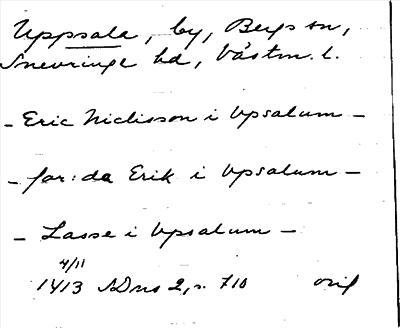 Uppsala, by, Bergs sn,
Snevringe hd, Västm. l.
- Eric Niclisson i Vpsalum -
- før: da Erik i Vpsalum -
- Lasse i Vpsalum -
4/11
1413 SD ns 2, s. 710 orig